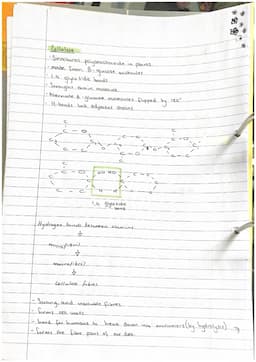 Cellulose
- Structural polysaccharide in plants
- made from β-glucose molecules
- 1,4 glycosidic bonds
- Straight chain molecule
- Alternate β-glucose monomers flipped by 180°
- H-bonds link adjacent chains
1,4 glycosidic
bond
Hydrogen bonds between chains
↓
microfibril
↓
macrofibril
↓
cellulose fibres
- Strong and insoluble fibres
- forms cell walls
- hard for humans to break down into monomers (by hydrolysis) →
- forms the fibre part of our diet